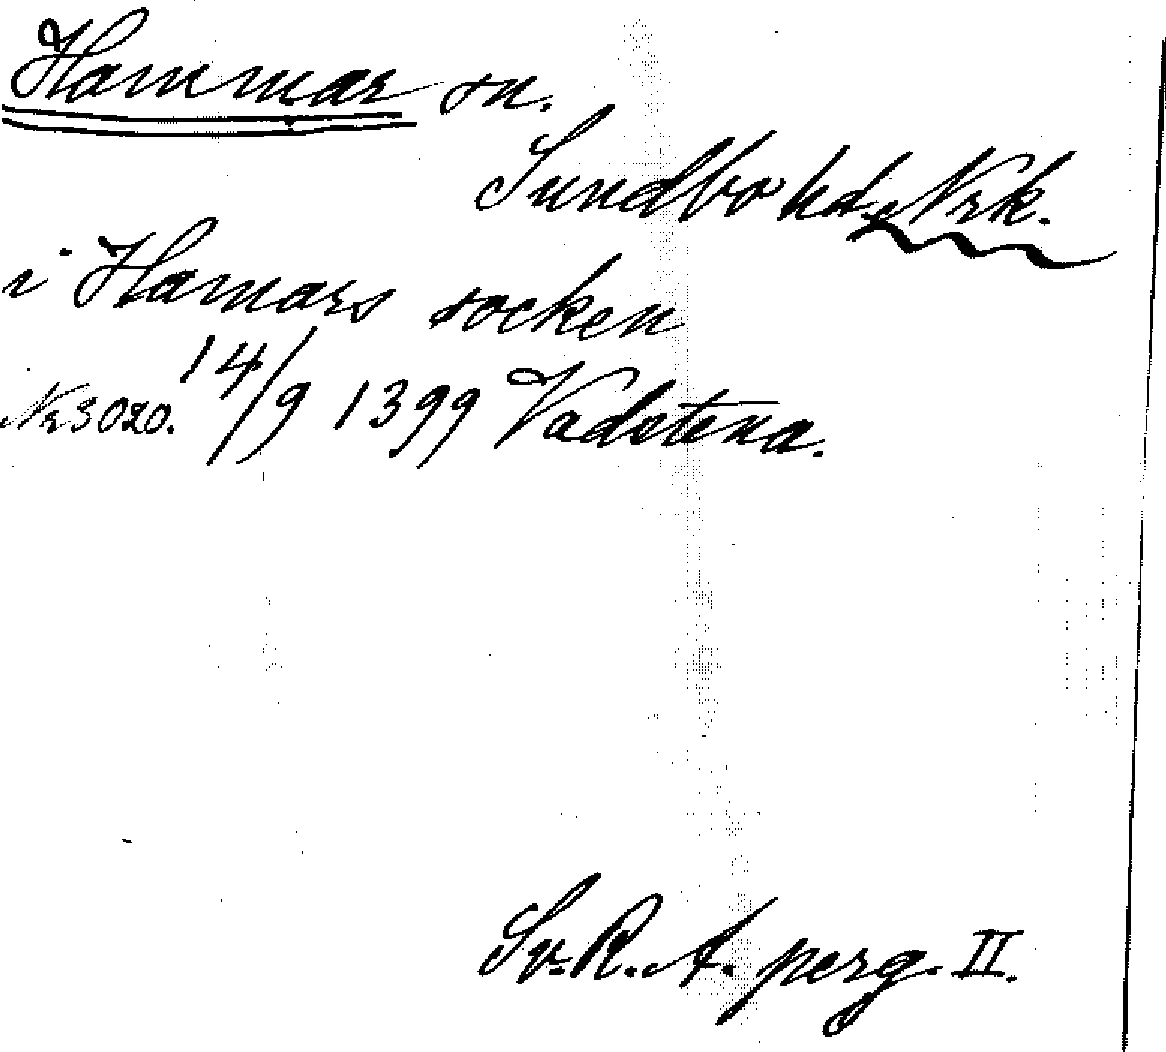 Hammar sn.
Sundbo hd, Nrk.
i Hamars socken
Nr 3020. 14/9 1399 Vadstena.
Sv. R. A. perg. II.